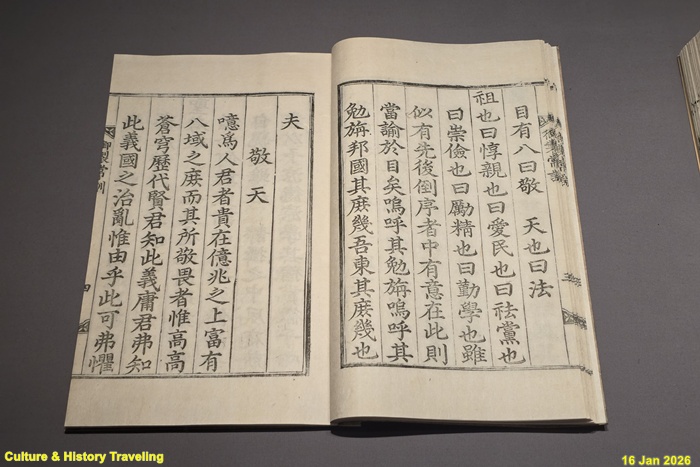 目有八曰敬 天也曰法
祖也曰惇親也曰愛民也曰祛黨也
曰崇儉也曰勵精也曰勤學也雖
似有先後倒序者中有意在此則
當諭於目矣嗚呼其勉旃嗚呼其
勉旃邦國其庶幾吾東其庶幾也
夫
敬 天
噫爲人君者貴在億兆之上富有
八域之庶而其所敬畏者惟高高
蒼穹歷代賢君知此義庸君弗知
此義國之治亂惟由乎此可弗懼
御製常訓
四
Culture & History Traveling
16 Jan 2026